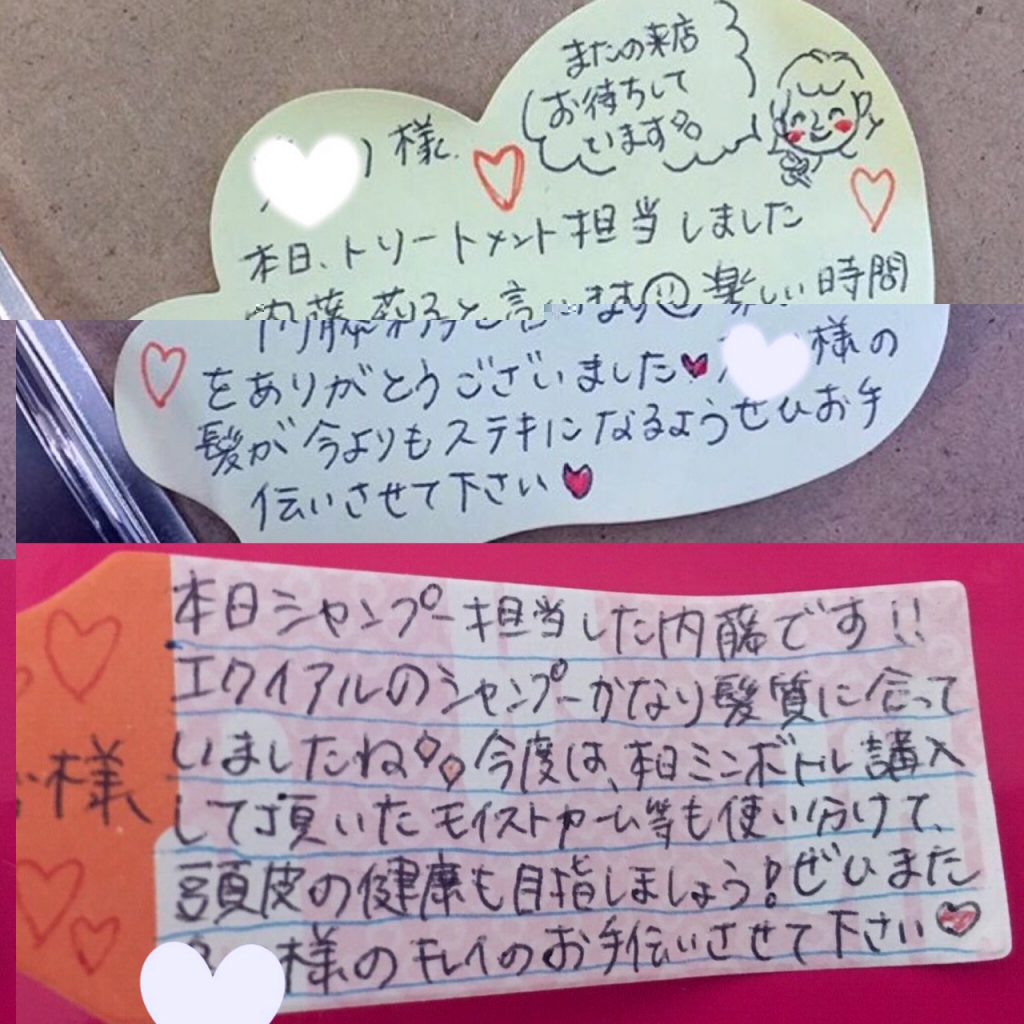 またの来店
お待ちして
います
様
本日、トリートメント担当しました
内藤莉子と言います 楽しい時間
をありがとうございました 様の
髪が今よりもステキになるようぜひお手
伝いさせて下さい
本日シャンプー担当した内藤です!!
エクイアルのシャンプーかなり髪質に合って
いましたね 今度は、本日ミニボトル講入
して頂いたモイストカーム等も使い分けて、
頭皮の健康も目指しましょう!ぜひまた
様のキレイのお手伝いさせて下さい
様